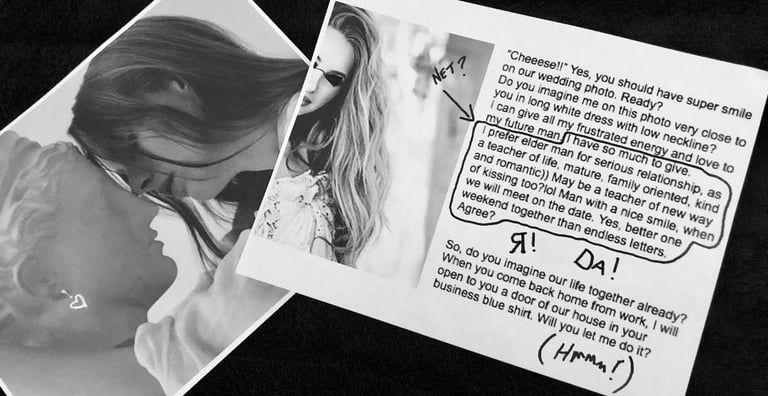 "Cheeese!!" Yes, you should have super smile
on our wedding photo. Ready?
Do you imagine me on this photo very close to
you in long white dress with low neckline?
I can give all my frustrated energy and love to
my future man. I have so much to give.
I prefer elder man for serious relationship, as
a teacher of life, mature. family oriented, kind
and romantic)) May be a teacher of new way
of kissing too?lol Man with a nice smile, when
we will meet on the date. Yes, better one
weekend together than endless letters.
Agree?
So, do you imagine our life together already?
When you come back home from work, I will
open to you a door of our house in your
business blue shirt. Will you let me do it?
NET?
Я!
DA!
(Hmmm!)